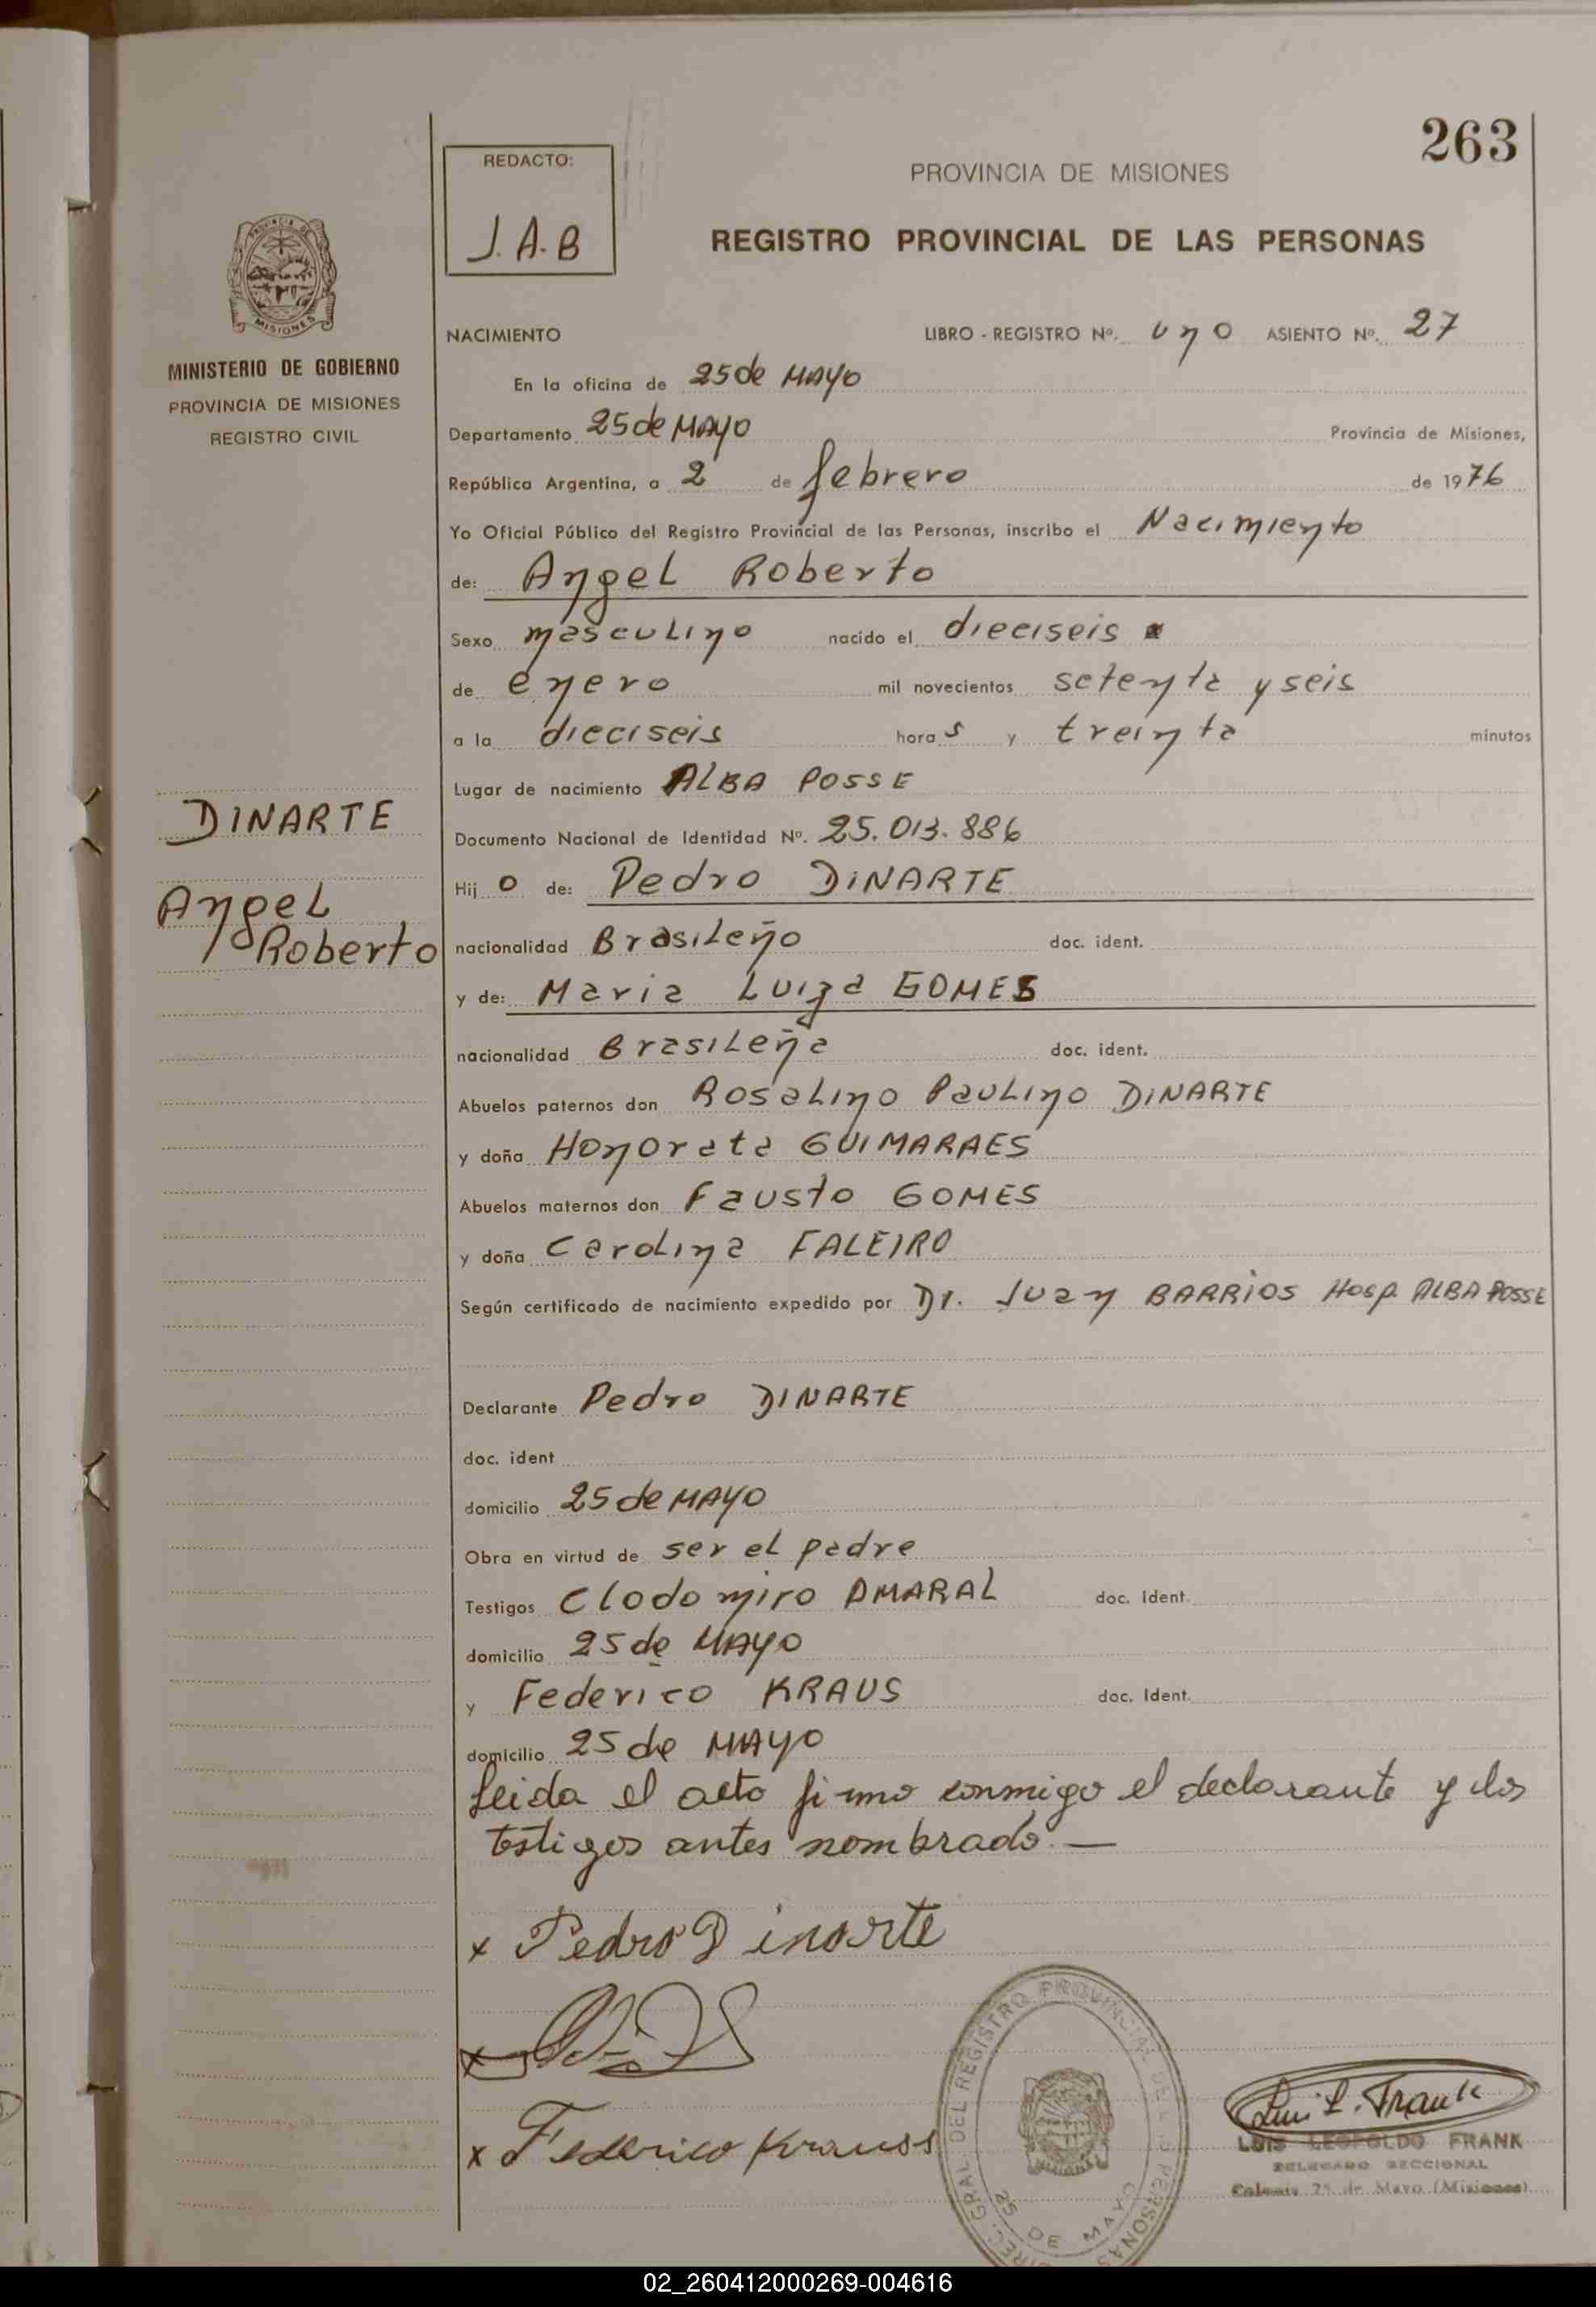 263
REDACTO:
J.A.B
PROVINCIA DE MISIONES
REGISTRO PROVINCIAL DE LAS PERSONAS
PROVINCIA DE
MISIONES
MINISTERIO DE GOBIERNO
PROVINCIA DE MISIONES
REGISTRO CIVIL
NACIMIENTO LIBRO - REGISTRO Nº. uno ASIENTO Nº. 27
En la oficina de 25 de MAYO
Departamento 25 de MAYO Provincia de Misiones,
República Argentina, a 2 de febrero de 1976
Yo Oficial Público del Registro Provincial de las Personas, inscribo el Nacimiento
de: Angel Roberto
Sexo masculino nacido el dieciseis
de enero mil novecientos setenta y seis
a la dieciseis horas y treinta minutos
Lugar de nacimiento ALBA POSSE
DINARTE
Angel
Roberto
Documento Nacional de Identidad Nº. 25.013.886
Hijo de: Pedro DINARTE
nacionalidad Brasileño doc. ident.
y de: Maria Luiza GOMES
nacionalidad Brasileña doc. ident.
Abuelos paternos don Rosalino Paulino DINARTE
y doña Honorata GUIMARAES
Abuelos maternos don Fausto GOMES
y doña Carolina FALEIRO
Según certificado de nacimiento expedido por Dr. Juan BARRIOS Hosp. ALBA POSSE
Declarante Pedro DINARTE
doc. ident
domicilio 25 de MAYO
Obra en virtud de ser el padre
Testigos Clodomiro AMARAL doc. ident.
domicilio 25 de MAYO
y Federico KRAUS doc. Ident.
domicilio 25 de MAYO
Leida el acto firmo conmigo el declarante y los
testigos antes nombrado. —
x Pedro Dinarte
x
x Federico Krauss
DIREC. GRAL. DEL REGISTRO PROVINCIAL DE LAS PERSONAS
25 DE MAYO
Luis L. Frank
LUIS LEOPOLDO FRANK
DELEGADO SECCIONAL
Colonia 25 de Mayo (Misiones)
02_260412000269-004616